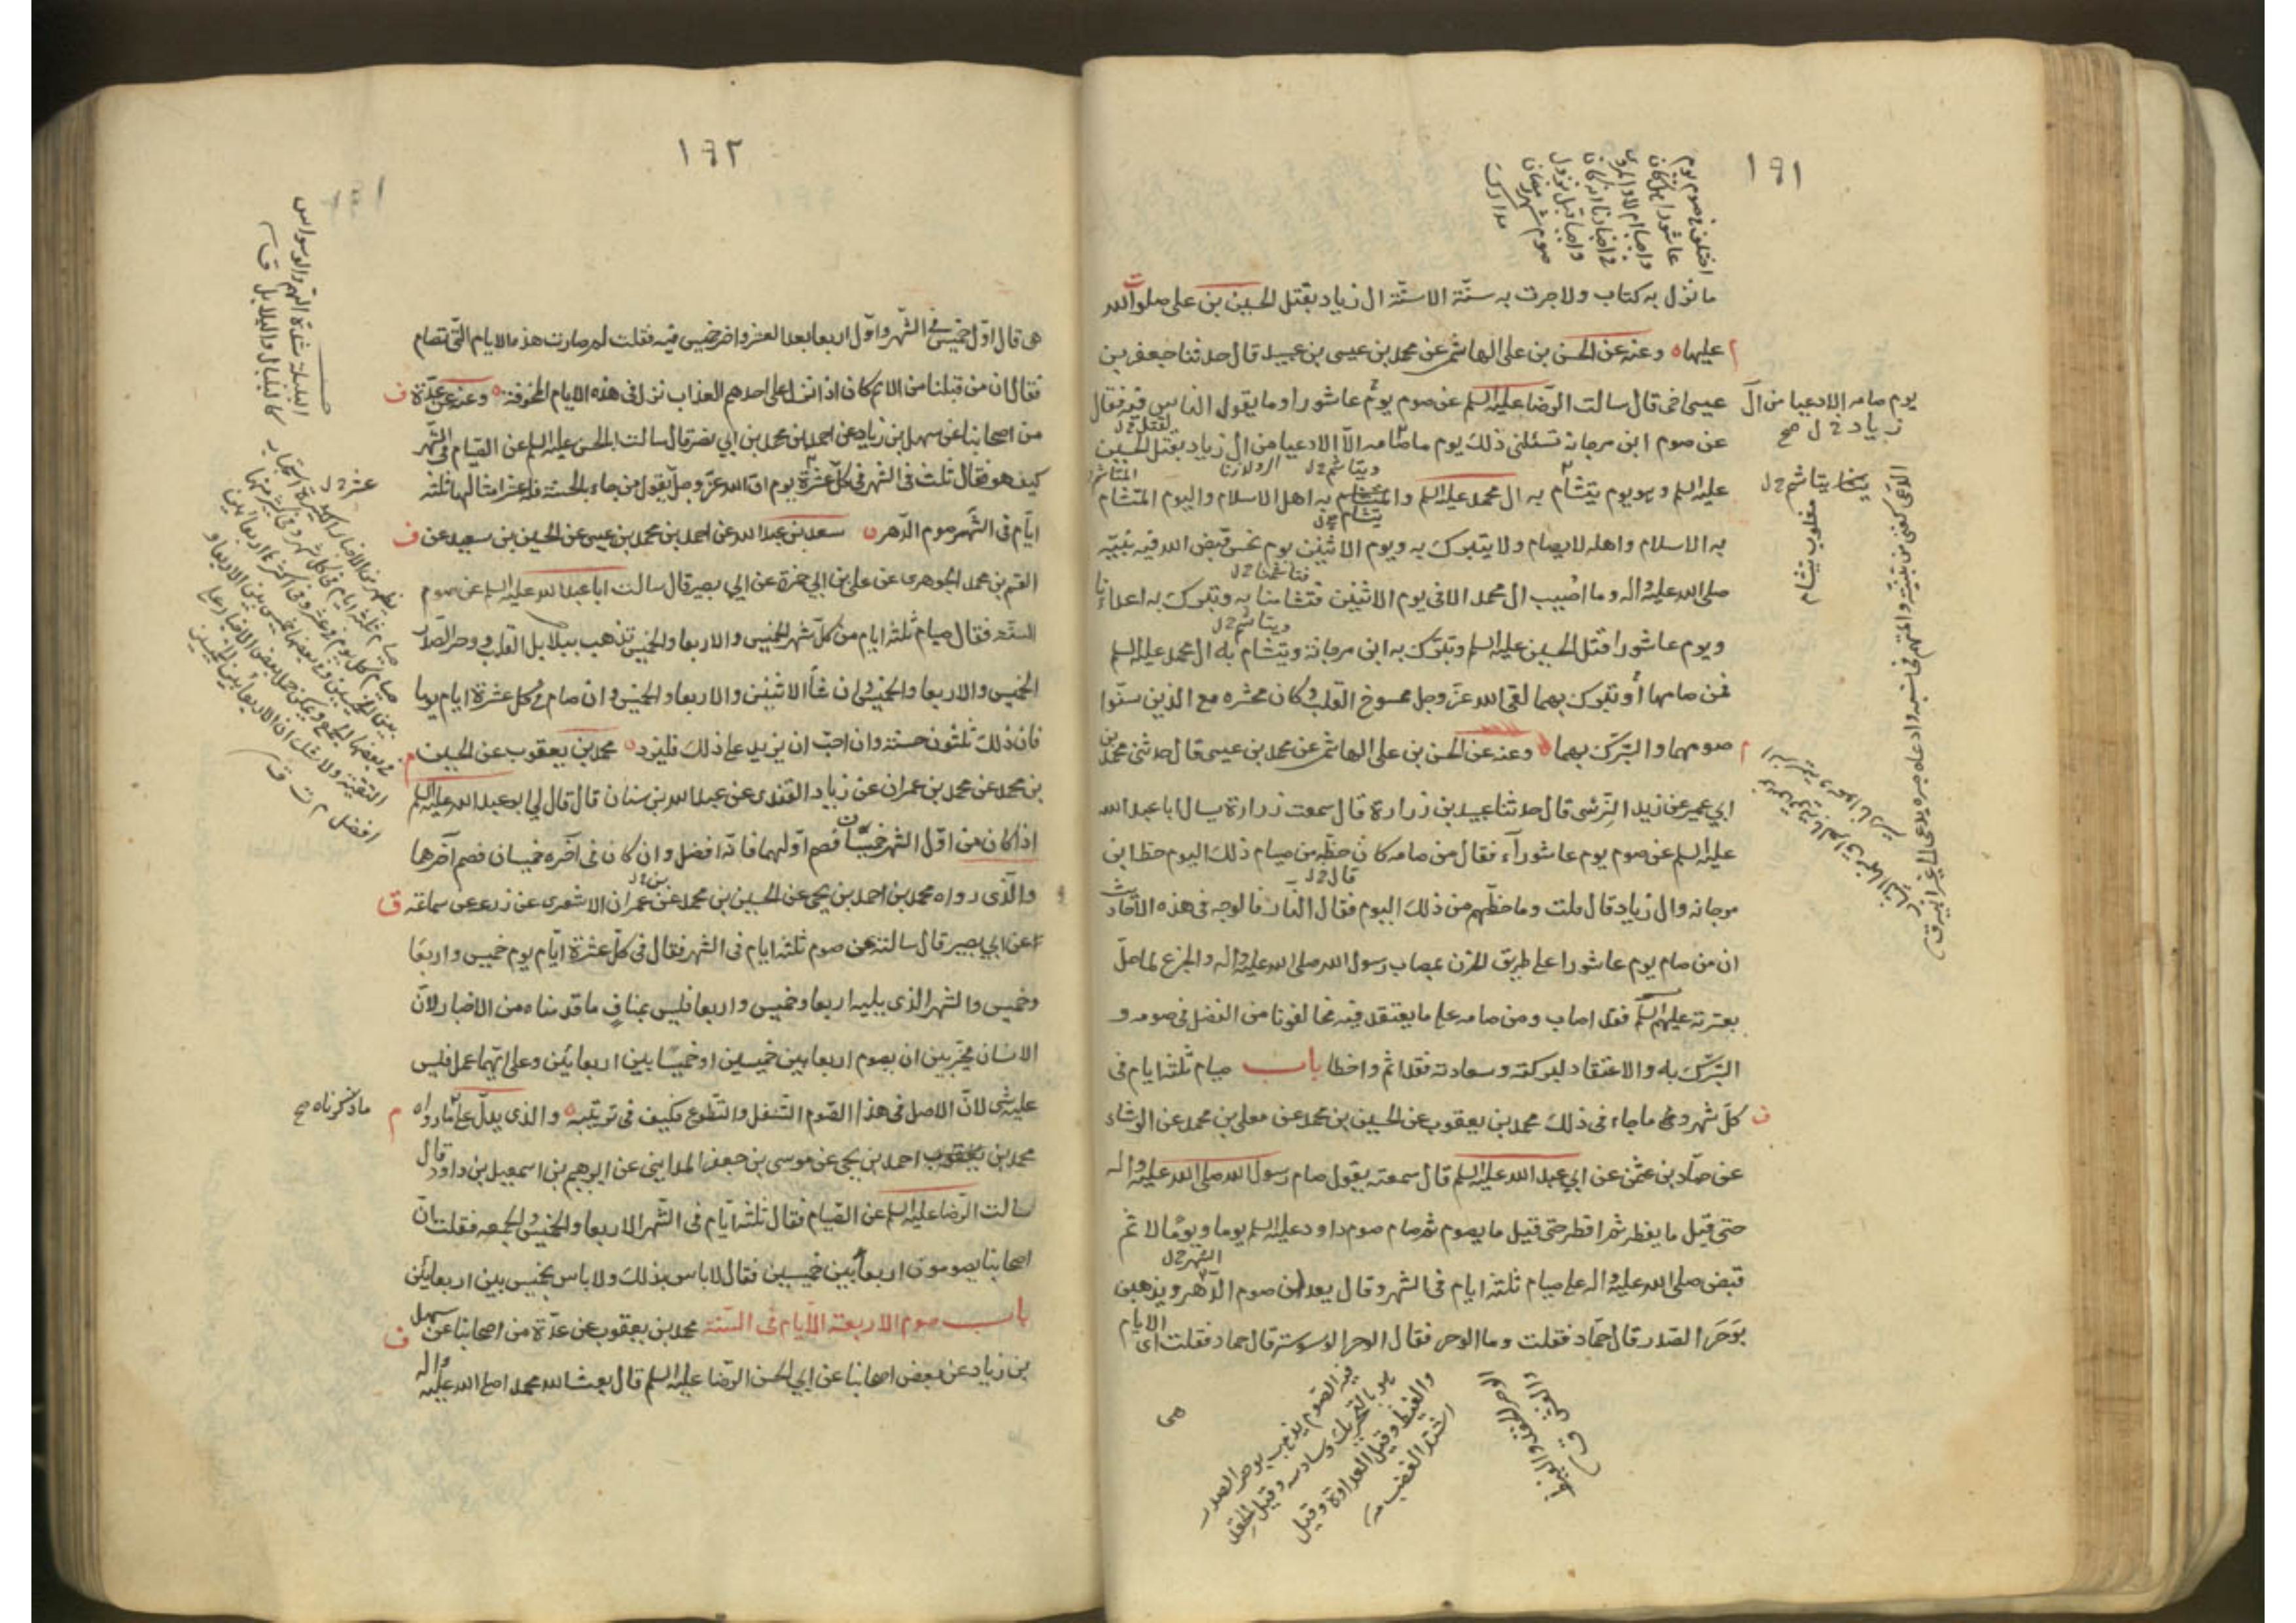 ١٩١
اختلف في صوم يوم
عاشورا هل كان
واجبا ام لا والمروى
في اخبارنا انه كان
واجبا قبل نزول
صوم شهر رمضان
مدارك
ما نزل به كتاب ولا جرت به سنّة الا سنّة ال زياد بقتل الحسين بن على صلوات الله
عليها وعنه عن الحسن بن على الهاشمى عن محمد بن عيسى بن عبيد قال حدثنا جعفر بن
عيسى اخى قال سالت الرّضا عليه السلم عن صوم يوم عاشورا وما يقول الناس فيه فقال
عن صوم ابن مرجانة تسئلنى ذلك يوم ما صامه الّا الادعيا من ال زياد بقتل الحسين
عليه السلم وهو يوم يتشأم به ال محمد عليه السلم و يتشأم به اهل الاسلام واليوم المتشأم
به الاسلام واهله لا يصام ولا يتبرك به ويوم الاثنين يوم نحس قبض الله فيه نبيّه
صلى الله عليه واله وما اصيب ال محمد الا فى يوم الاثنين فتشأمنا به وتبرك به اعداؤنا
ويوم عاشورا قتل الحسين عليه السلم وتبرك به ابن مرجانة ويتشأم به ال محمد عليه السلم
فمن صامها أو تبرك بهما لقى الله عزّ وجل ممسوخ القلب وكان محشره مع الذين سنّوا
صومهما والتبرّك بهما وعنه عن الحسن بن على الهاشمى عن محمد بن عيسى قال حدثنى محمد بن
ابي عمير عن زيد النّرسى قال حدثنا عبيد بن زرارة قال سمعت زرارة يسال ابا عبد الله
عليه السلم عن صوم يوم عاشورآء فقال من صامه كان حظّه من صيام ذلك اليوم حظ ابن
مرجانه وال زياد قال قلت وما حظّهم من ذلك اليوم فقال النار فالوجه فى هذه الاحاديث
ان من صام يوم عاشورا على طريق الحزن بمصاب رسول الله صلى الله عليه واله والجزع لما حلّ
بعترته عليهم السلم فقد اصاب ومن صامه على ما يعتقد فيه مخالفونا من الفضل فى صومه و
التبرّك به والاعتقاد لبركته وسعادته فقد اثم واخطا باب صيام ثلثة ايام فى
كلّ شهر وما جاء فى ذلك محمد بن يعقوب عن الحسين بن محمد عن معلى بن محمد عن الوشاء
عن حمّاد بن عثمن عن ابي عبد الله عليه السلم قال سمعته يقول صام رسول الله صلى الله عليه واله
حتى قيل ما يفطر ثم افطر حتى قيل ما يصوم ثم صام صوم داود عليه السلم يوما ويومًا لا ثم
قبض صلى الله عليه واله على صيام ثلثة ايام فى الشهر وقال يعدلن صوم الدّهر ويذهبن
بوَحَر الصّدر قال حمّاد فقلت وما الوحر فقال الوحر الوسوسة قال حماد فقلت اى الايام
هى
يوم صامه الادعيا من آل
زياد 2 ل صح
فيه الصّوم يذهب بوحر الصدر
هو بالتحريك وساوسه وقيل الحقد
والغيظ وقيل العداوة وقيل
اشد الغضب
١٩٢
هى قال اوّل خميس فى الشّهر واوّل اربعا بعد العشر واخر خميس فيه فقلت لم صارت هذه الايام التّى تصام
فقال ان من قبلنا من الامم كان اذا نزل على احدهم العذاب نزل فى هذه الايام المخوفة وعنه عن عدّة
من اصحابنا عن سهل بن زياد عن احمد بن محمد بن ابي نصر قال سالت ابا الحسن عليه السلم عن الصّيام فى الشّهر
كيف هو فقال ثلث فى الشهر فى كلّ عشرة يوم انّ الله عزّ وجلّ يقول من جاء بالحسنة فله عشر امثالها ثلثة
ايّام فى الشّهر صوم الدّهر سعد بن عبد الله عن احمد بن محمد بن عيسى عن الحسين بن سعيد عن
القسم بن محمد الجوهرى عن على بن ابي حمزة عن ابي بصير قال سالت ابا عبد الله عليه السلم عن صوم
السنة فقال صيام ثلثة ايام من كلّ شهر الخميس والاربعا والخميس تذهب ببلابل القلب ووحر الصّدر
الخميس والاربعا والخميس وان شأ الاثنين والاربعا والخميس وان صام فى كل عشرة ايام يوما
فان ذلك ثلثون حسنة وان احبّ ان يزيد على ذلك فليزد محمد بن يعقوب عن الحسين
بن محمد عن محمد بن عمران عن زياد القندى عن عبد الله بن سنان قال قال لي ابو عبد الله عليه السلم
اذا كان من اوّل الشهر خميسان فصم اولهما فانه افضل وان كان فى آخره خميسان فصم آخرهما
والّذى رواه محمد بن احمد بن يحيى عن الحسين بن محمد عن عمران الاشعرى عن زرعه عن سماعة
عن ابي بصير قال سالته عن صوم ثلثة ايام فى الشهر فقال فى كلّ عشرة ايّام يوم خميس واربعا
وخميس والشهر الذى يليه اربعا وخميس واربعا فليس بمنافٍ ما قدمناه من الاخبار لانّ
الانسان مخيّر بين ان يصوم اربعا بين خميسين او خميسًا بين اربعائين وعلى ايّهما عمل فليس
عليه شى لانّ الاصل فى هذا الصّوم التنفل والتّطوع فكيف فى ترتيبه والذى يدلّ على ما رواه
محمد بن يعقوب احمد بن يحيى عن موسى بن جعفر المداينى عن ابرهيم بن اسمعيل بن داود قال
سالت الرّضا عليه السلم عن الصّيام فقال ثلثة ايّام فى الشهر الاربعا والخميس والجمعه فقلت انّ
اصحابنا يصومون اربعا بين خميسين فقال لا باس بذلك ولا باس بخميس بين اربعائين
باب صوم الاربعة الايام فى السّنة محمد بن يعقوب عن عدّة من اصحابنا عن سهل
بن زياد عن بعض اصحابنا عن ابي الحسن الرّضا عليه السلم قال بعث الله محمدا صلى الله عليه واله
ما ذكرناه صح
البلبلة شدّة الهمّ والوسواس
كالبلبال والبلابل ق